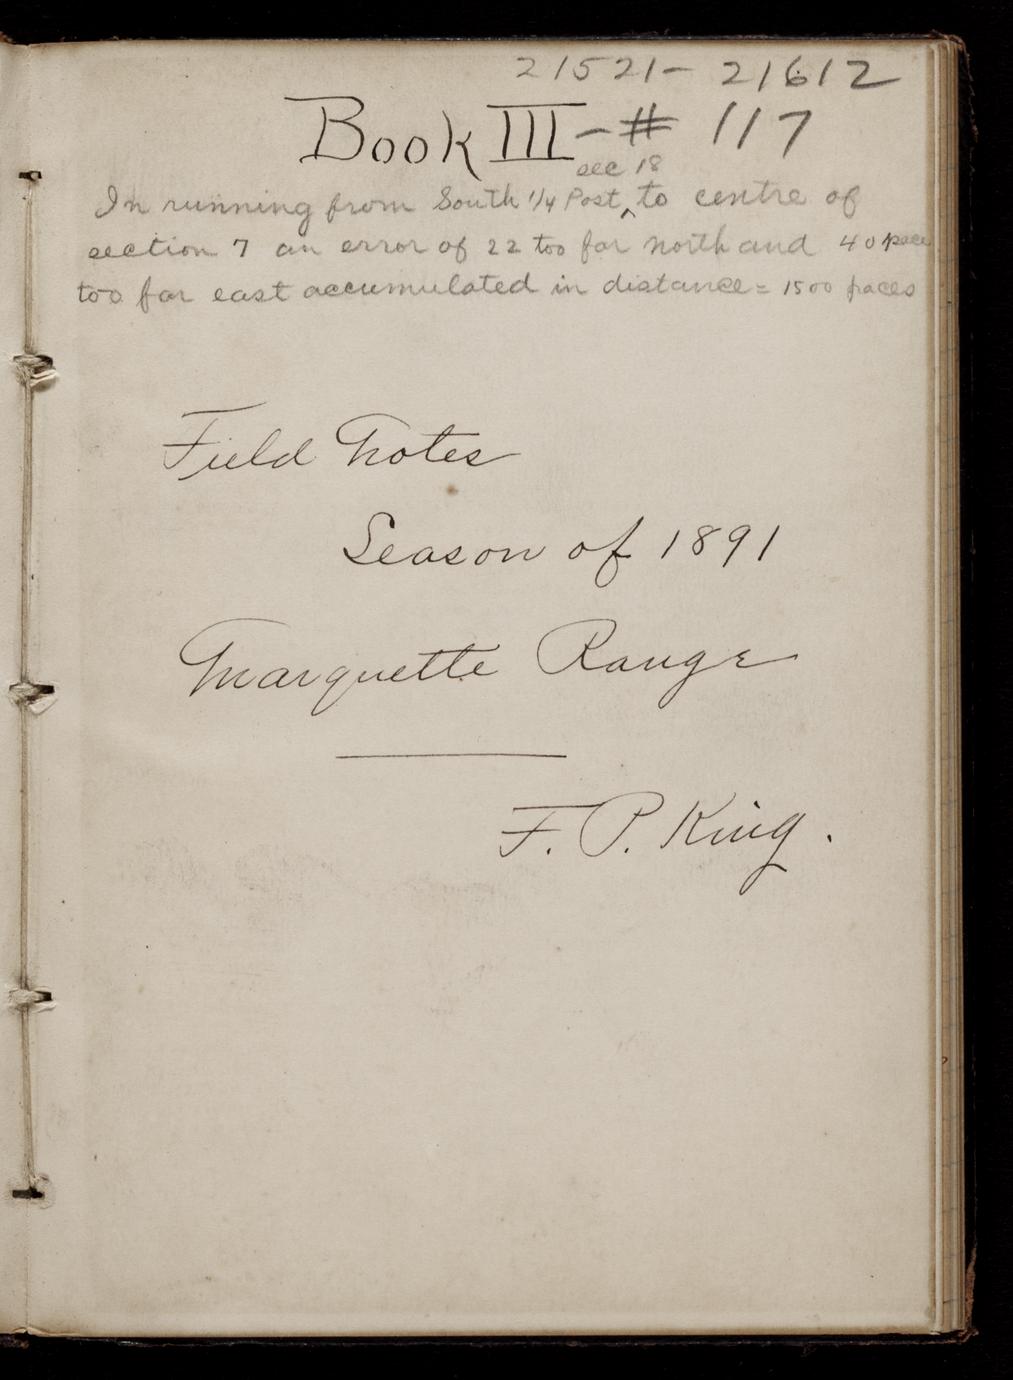 21521- 21612
Book III - # 117
sec 18
In running from South 1/4 Post ‸ to centre of
section 7 an error of 22 too far north and 40 paces
too far east accumulated in distance = 1500 paces
Field Notes
Season of 1891
Marquette Range
F. P. King.